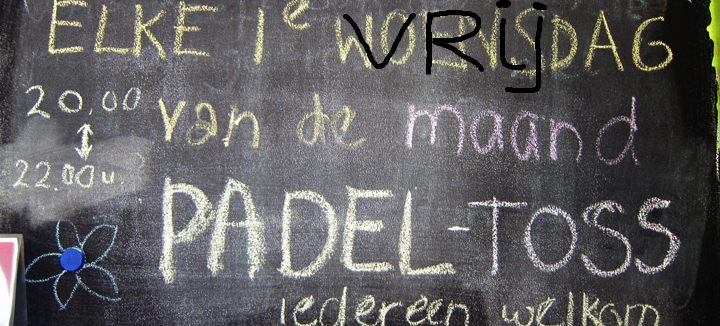 ELKE 1e VRIJDAG
20.00 van de maand
22.00u.
PADEL-TOSS
iedereen welkom